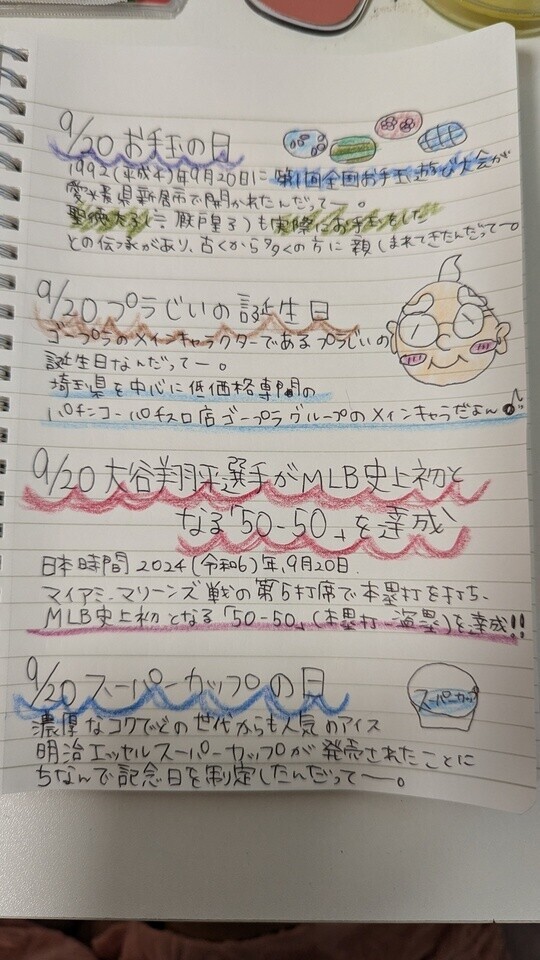 9/20 お手玉の日
1992(平成4)年9月20日に 第1回全国お手玉遊び大会が
愛媛県新居市で開かれたんだって〜。
聖徳太子(≒厩戸皇子)も実際にお手玉をした
との伝承があり、古くから多くの方に親しまれてきたんだって〜。
9/20 プラじいの誕生日
ゴープラのメインキャラクターであるプラじいの
誕生日なんだって〜。
埼玉県を中心に低価格専門の
パチンコ・パチスロ店ゴープラグループのメインキャラだよん♪
9/20 大谷翔平選手がMLB史上初と
なる「50-50」を達成
日本時間 2024(令和6)年、9月20日.
マイアミ・マリーンズ戦の第5打席で本塁打を打ち、
MLB史上初となる「50-50」(本塁打-盗塁)を達成!!
9/20 スーパーカップの日
スーパーカップ
濃厚なコクでどの世代からも人気のアイス
明治エッセルスーパーカップが発売されたことに
ちなんで記念日を制定したんだって〜。